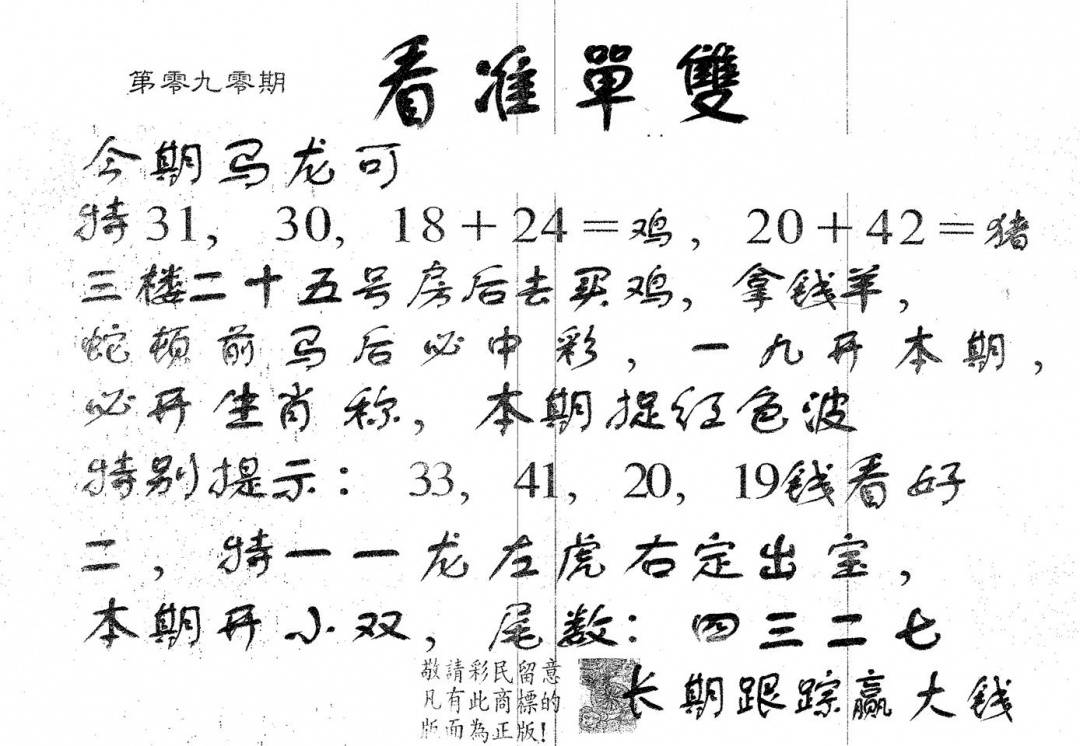 第零九零期
看准單雙
今期马龙可
特31, 30, 18＋24＝鸡, 20＋42＝猪
三楼二十五号房后去买鸡, 拿钱羊,
蛇頓前马后必中彩, 一九开本期,
必开生肖称, 本期捉红色波
特别提示: 33, 41, 20, 19钱看好
二, 特一一龙左虎右定出宝,
本期开小双, 尾数: 四三二七
敬請彩民留意
凡有此商標的
版面為正版!
长期跟踪赢大钱